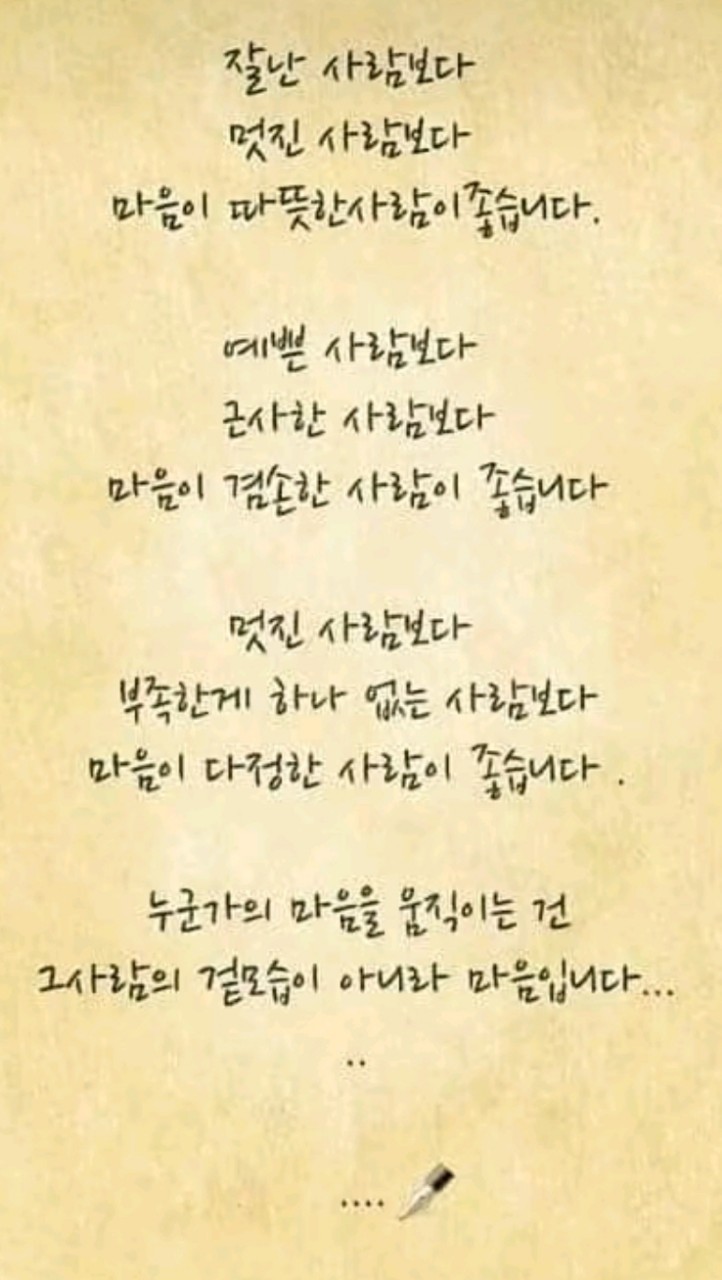 잘난 사람보다
멋진 사람보다
마음이 따뜻한사람이좋습니다.
예쁜 사람보다
근사한 사람보다
마음이 겸손한 사람이 좋습니다
멋진 사람보다
부족한게 하나 없는 사람보다
마음이 다정한 사람이 좋습니다 .
누군가의 마음을 움직이는 건
그사람의 겉모습이 아니라 마음입니다...
..
....